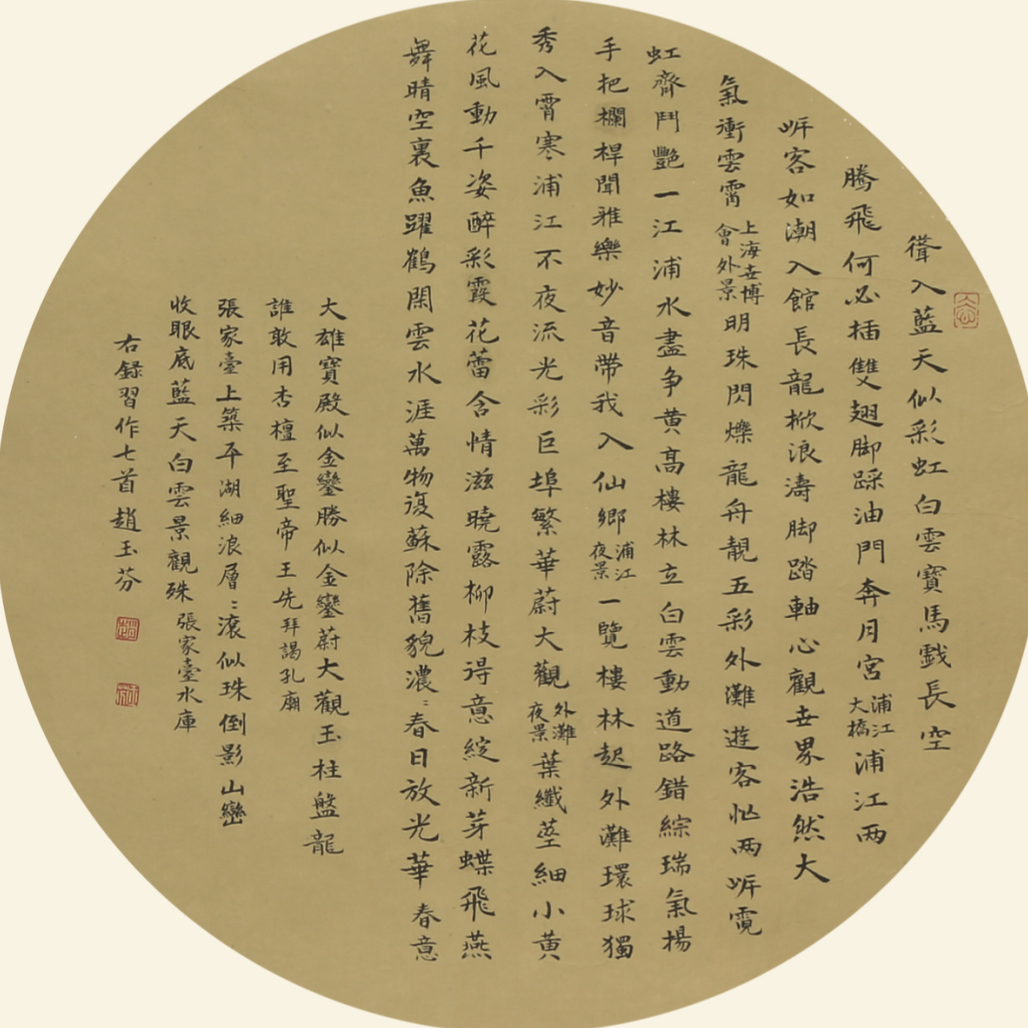 聳入藍天似彩虹白雲寶馬戲長空
騰飛何必插雙翅脚踩油門奔月宮浦江大橋浦江两
岼客如潮入館長龍掀浪濤脚踏軸心觀世界浩然大
氣衝雲霄上海世博會外景明珠閃爍龍舟靚五彩外灘遊客忙两岼霓
虹齊鬥艷一江浦水盡争黄高樓林立白雲動道路錯綜瑞氣揚
手把欄桿聞雅樂妙音帶我入仙鄉浦江夜景一覽樓林起外灘環球獨
秀入霄寒浦江不夜流光彩巨埠繁華蔚大觀外灘夜景葉纖莖細小黄
花風動千姿醉彩霞花蕾含情滋曉露柳枝得意綻新芽蝶飛燕
舞晴空裏魚躍鶴閑雲水涯萬物復蘇除舊貌濃濃春日放光華春意
大雄寶殿似金鑾勝似金鑾蔚大觀玉柱盤龍
誰敢用杏檀至聖帝王先拜謁孔廟
張家臺上築平湖細浪層層滚似珠倒影山巒
收眼底藍天白雲景觀殊張家臺水庫
右錄習作七首趙玉芬